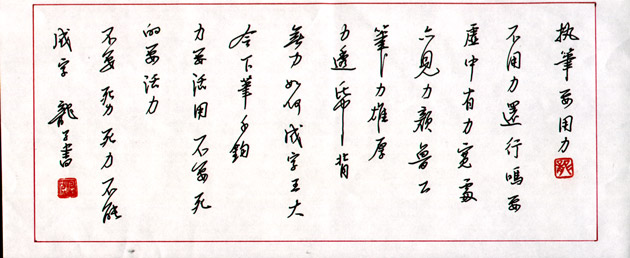 执筆要用力
不用力還行嗎要
虚中有力寬處
亦见力颜鲁公
筆力雄厚
力透帋背
無力如何成字王大
令下筆千鈞
力要活用不要死
的要活力
不要死力死力不能
成字 龍子書